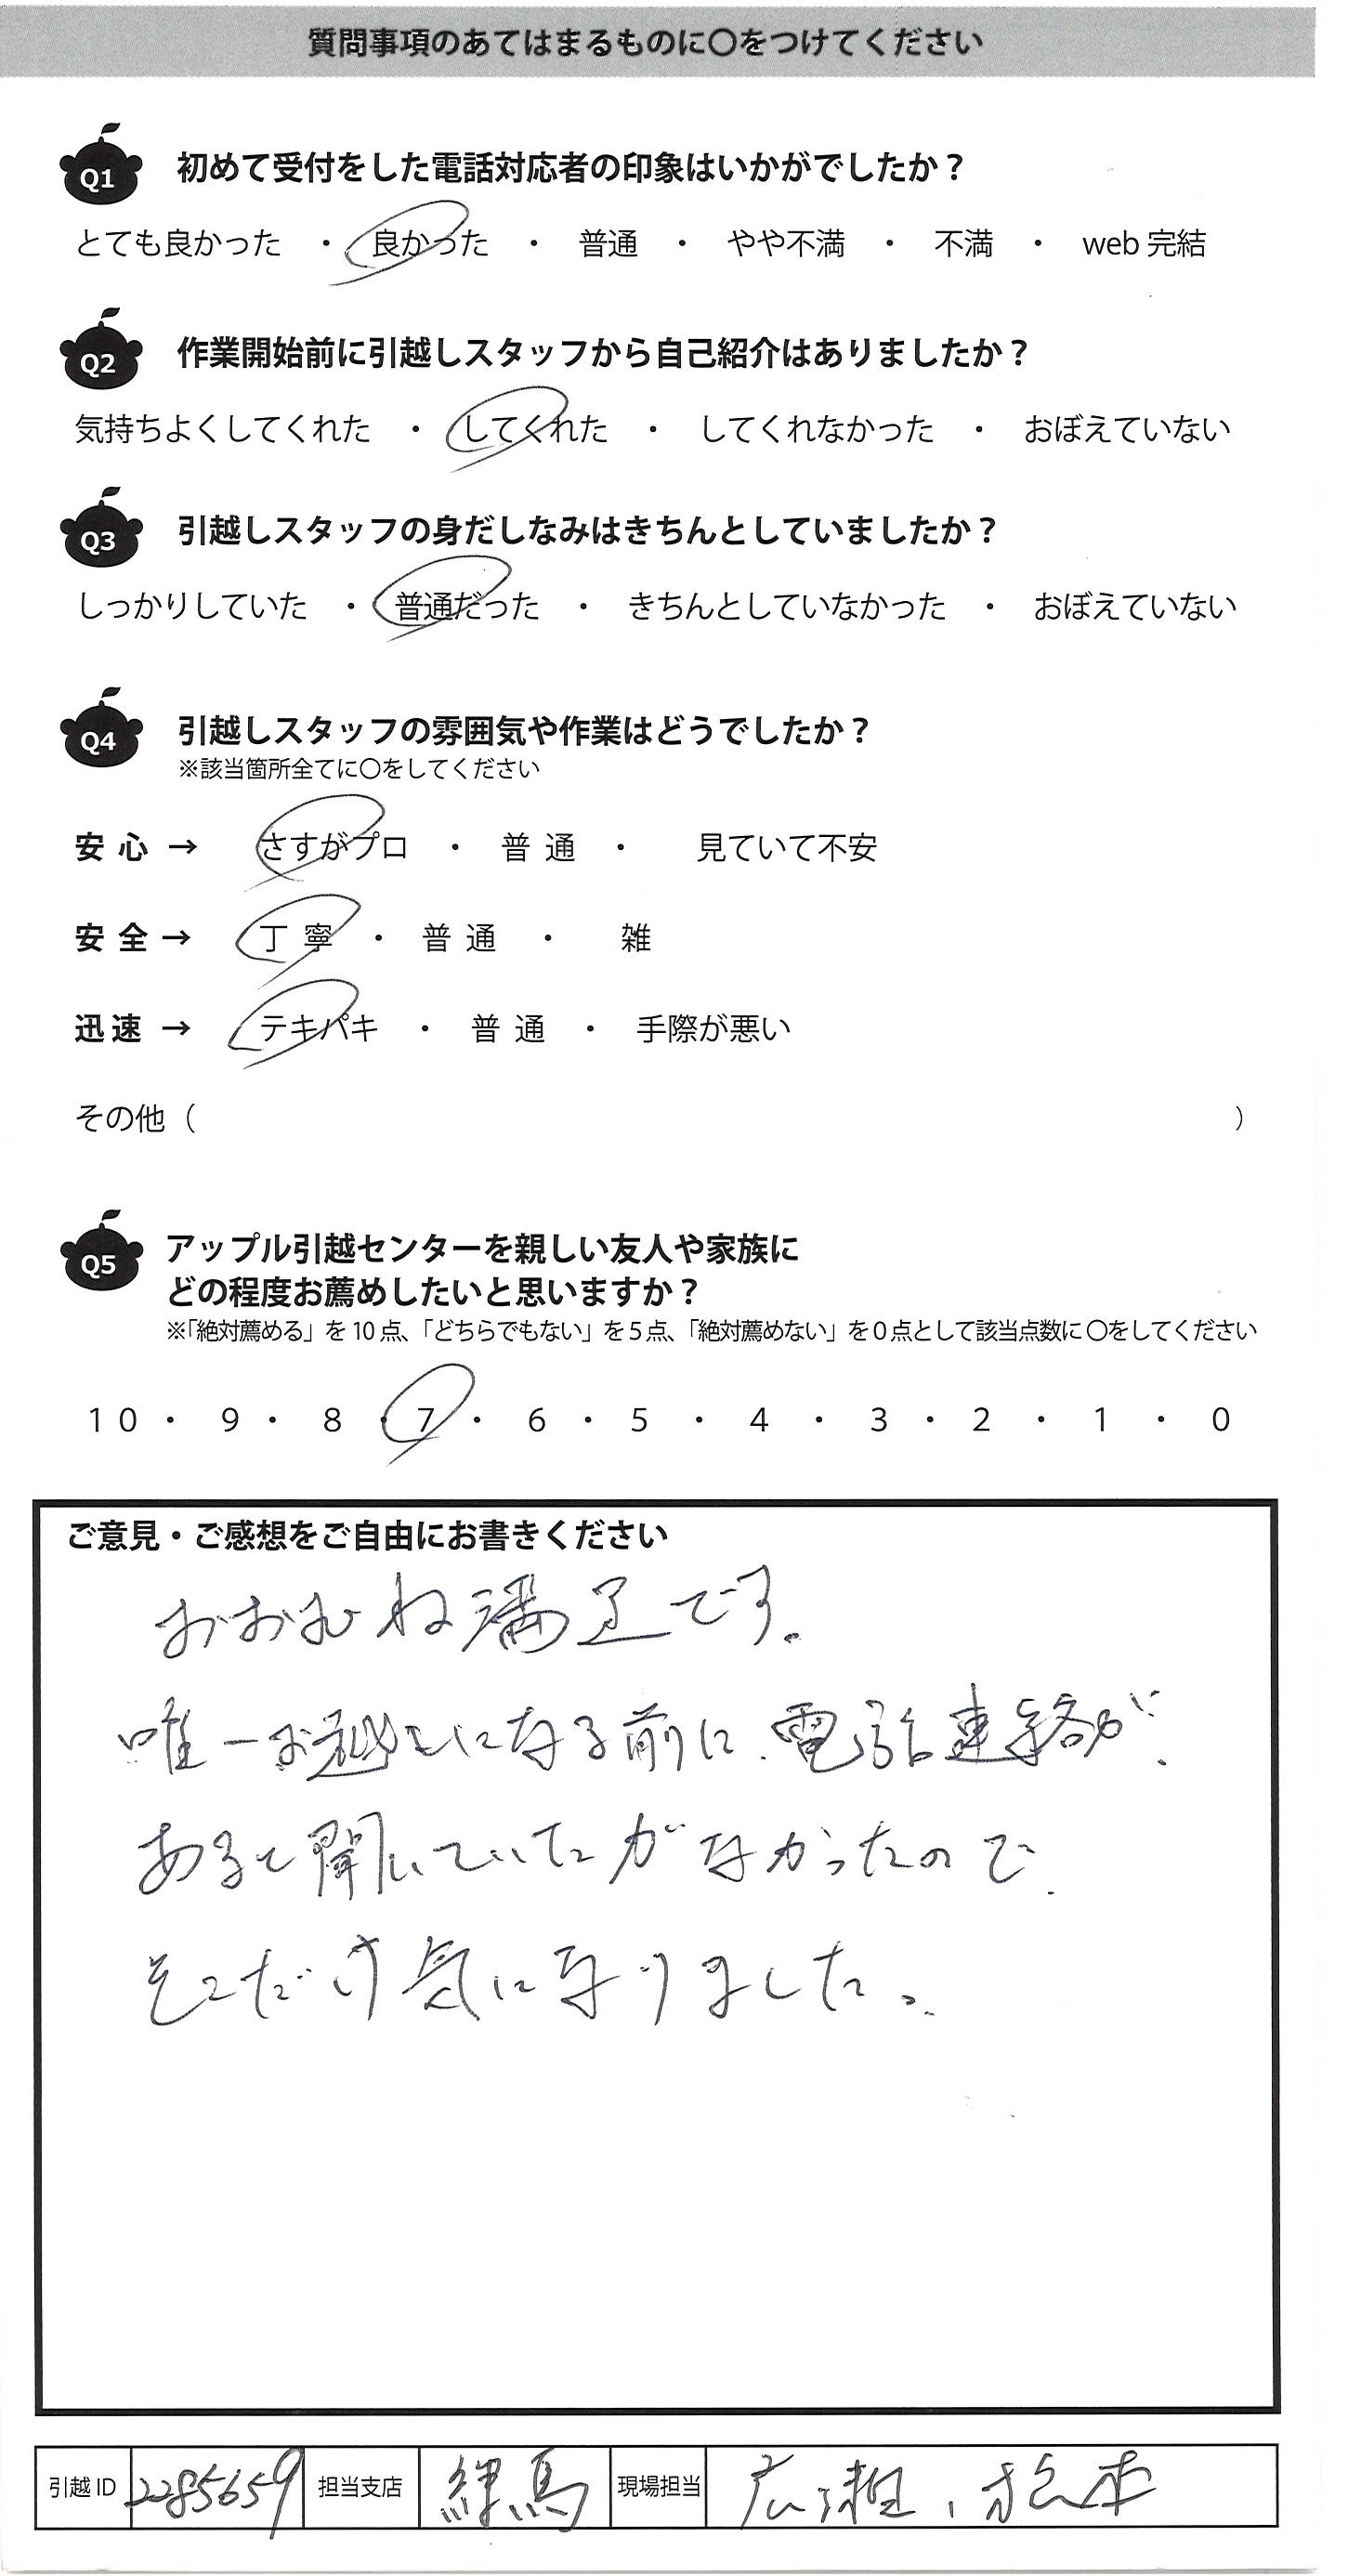 質問事項のあてはまるものに〇をつけてください
Q1 初めて受付をした電話対応者の印象はいかがでしたか？
とても良かった ・ 良かった ・ 普通 ・ やや不満 ・ 不満 ・ web 完結
Q2 作業開始前に引越しスタッフから自己紹介はありましたか？
気持ちよくしてくれた ・ してくれた ・ してくれなかった ・ おぼえていない
Q3 引越しスタッフの身だしなみはきちんとしていましたか？
しっかりしていた ・ 普通だった ・ きちんとしていなかった ・ おぼえていない
Q4 引越しスタッフの雰囲気や作業はどうでしたか？
※該当箇所全てに〇をしてください
安心 → さすがプロ ・ 普通 ・ 見ていて不安
安全 → 丁寧 ・ 普通 ・ 雑
迅速 → テキパキ ・ 普通 ・ 手際が悪い
その他（ ）
Q5 アップル引越センターを親しい友人や家族に
どの程度お薦めしたいと思いますか？
※「絶対薦める」を 10 点、「どちらでもない」を 5 点、「絶対薦めない」を 0 点として該当点数に 〇をしてください
10 ・ 9 ・ 8 ・ 7 ・ 6 ・ 5 ・ 4 ・ 3 ・ 2 ・ 1 ・ 0
ご意見・ご感想をご自由にお書きください
おおむね満足です。
唯一お越しになる前に、電話連絡が、
あると聞いていたがなかったので、
そこだけ気になりました。
引越 ID 2285659 担当支店 練馬 現場担当 広瀬、